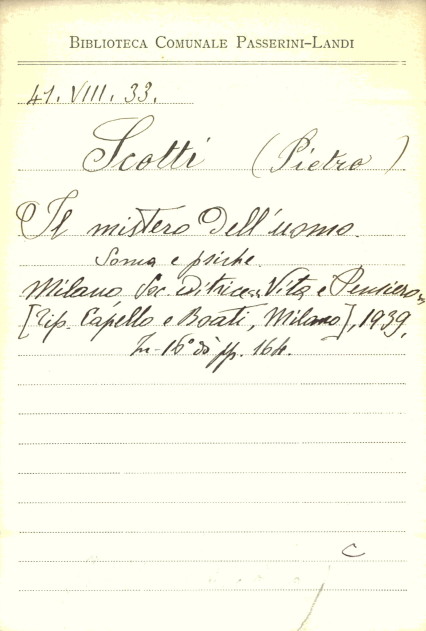 BIBLIOTECA COMUNALE PASSERINI-LANDI
41. VIII. 33.
Scotti (Pietro)
Il mistero dell'uomo.
Soma e psiche.
Milano Soc. editrice "Vita e Pensiero"
[Tip. Capello e Boati, Milano], 1939,
In-16° di pp. 164.
C